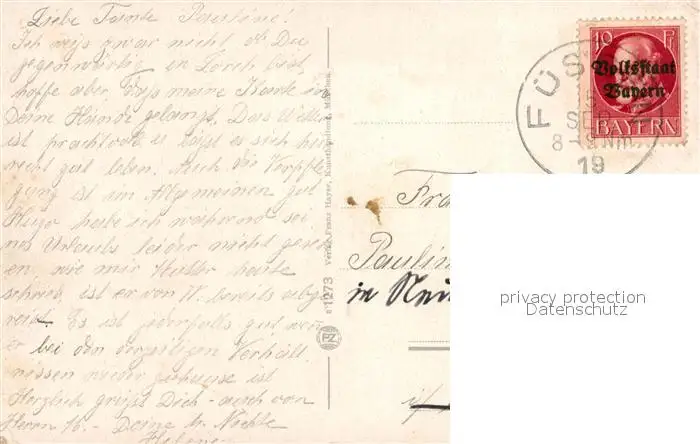 Liebe Tante Pauline!
Ich weiss zwar nicht ob Du
gegenwärtig in Lorch bist,
hoffe aber dass meine Karte in
Deine Hände gelangt. Das Wetter
ist prachtvoll u. lässt es sich hier
recht gut leben. Auch die Verpfle
gung ist im Allgemeinen gut
Hugo habe ich während sei
nes Urlaubs leider nicht geseh
en, wie mir Mutter heute
schrieb, ist er von W. bereits abge
reist. Es ist jedenfalls gut wenn
er bei den derzeitigen Verhält
nissen wieder zuhause ist
Herzlich grüsst Dich auch von
Herrn Deine tr. Nichte
Helene
Verlag Franz Hayer, Kunsthandlung, München
1273
PZ
10 Pf
Volksstaat
Bayern
BAYERN
FÜS
SEP
8-9 Nm
19
Pauline
in
privacy protection
Datenschutz